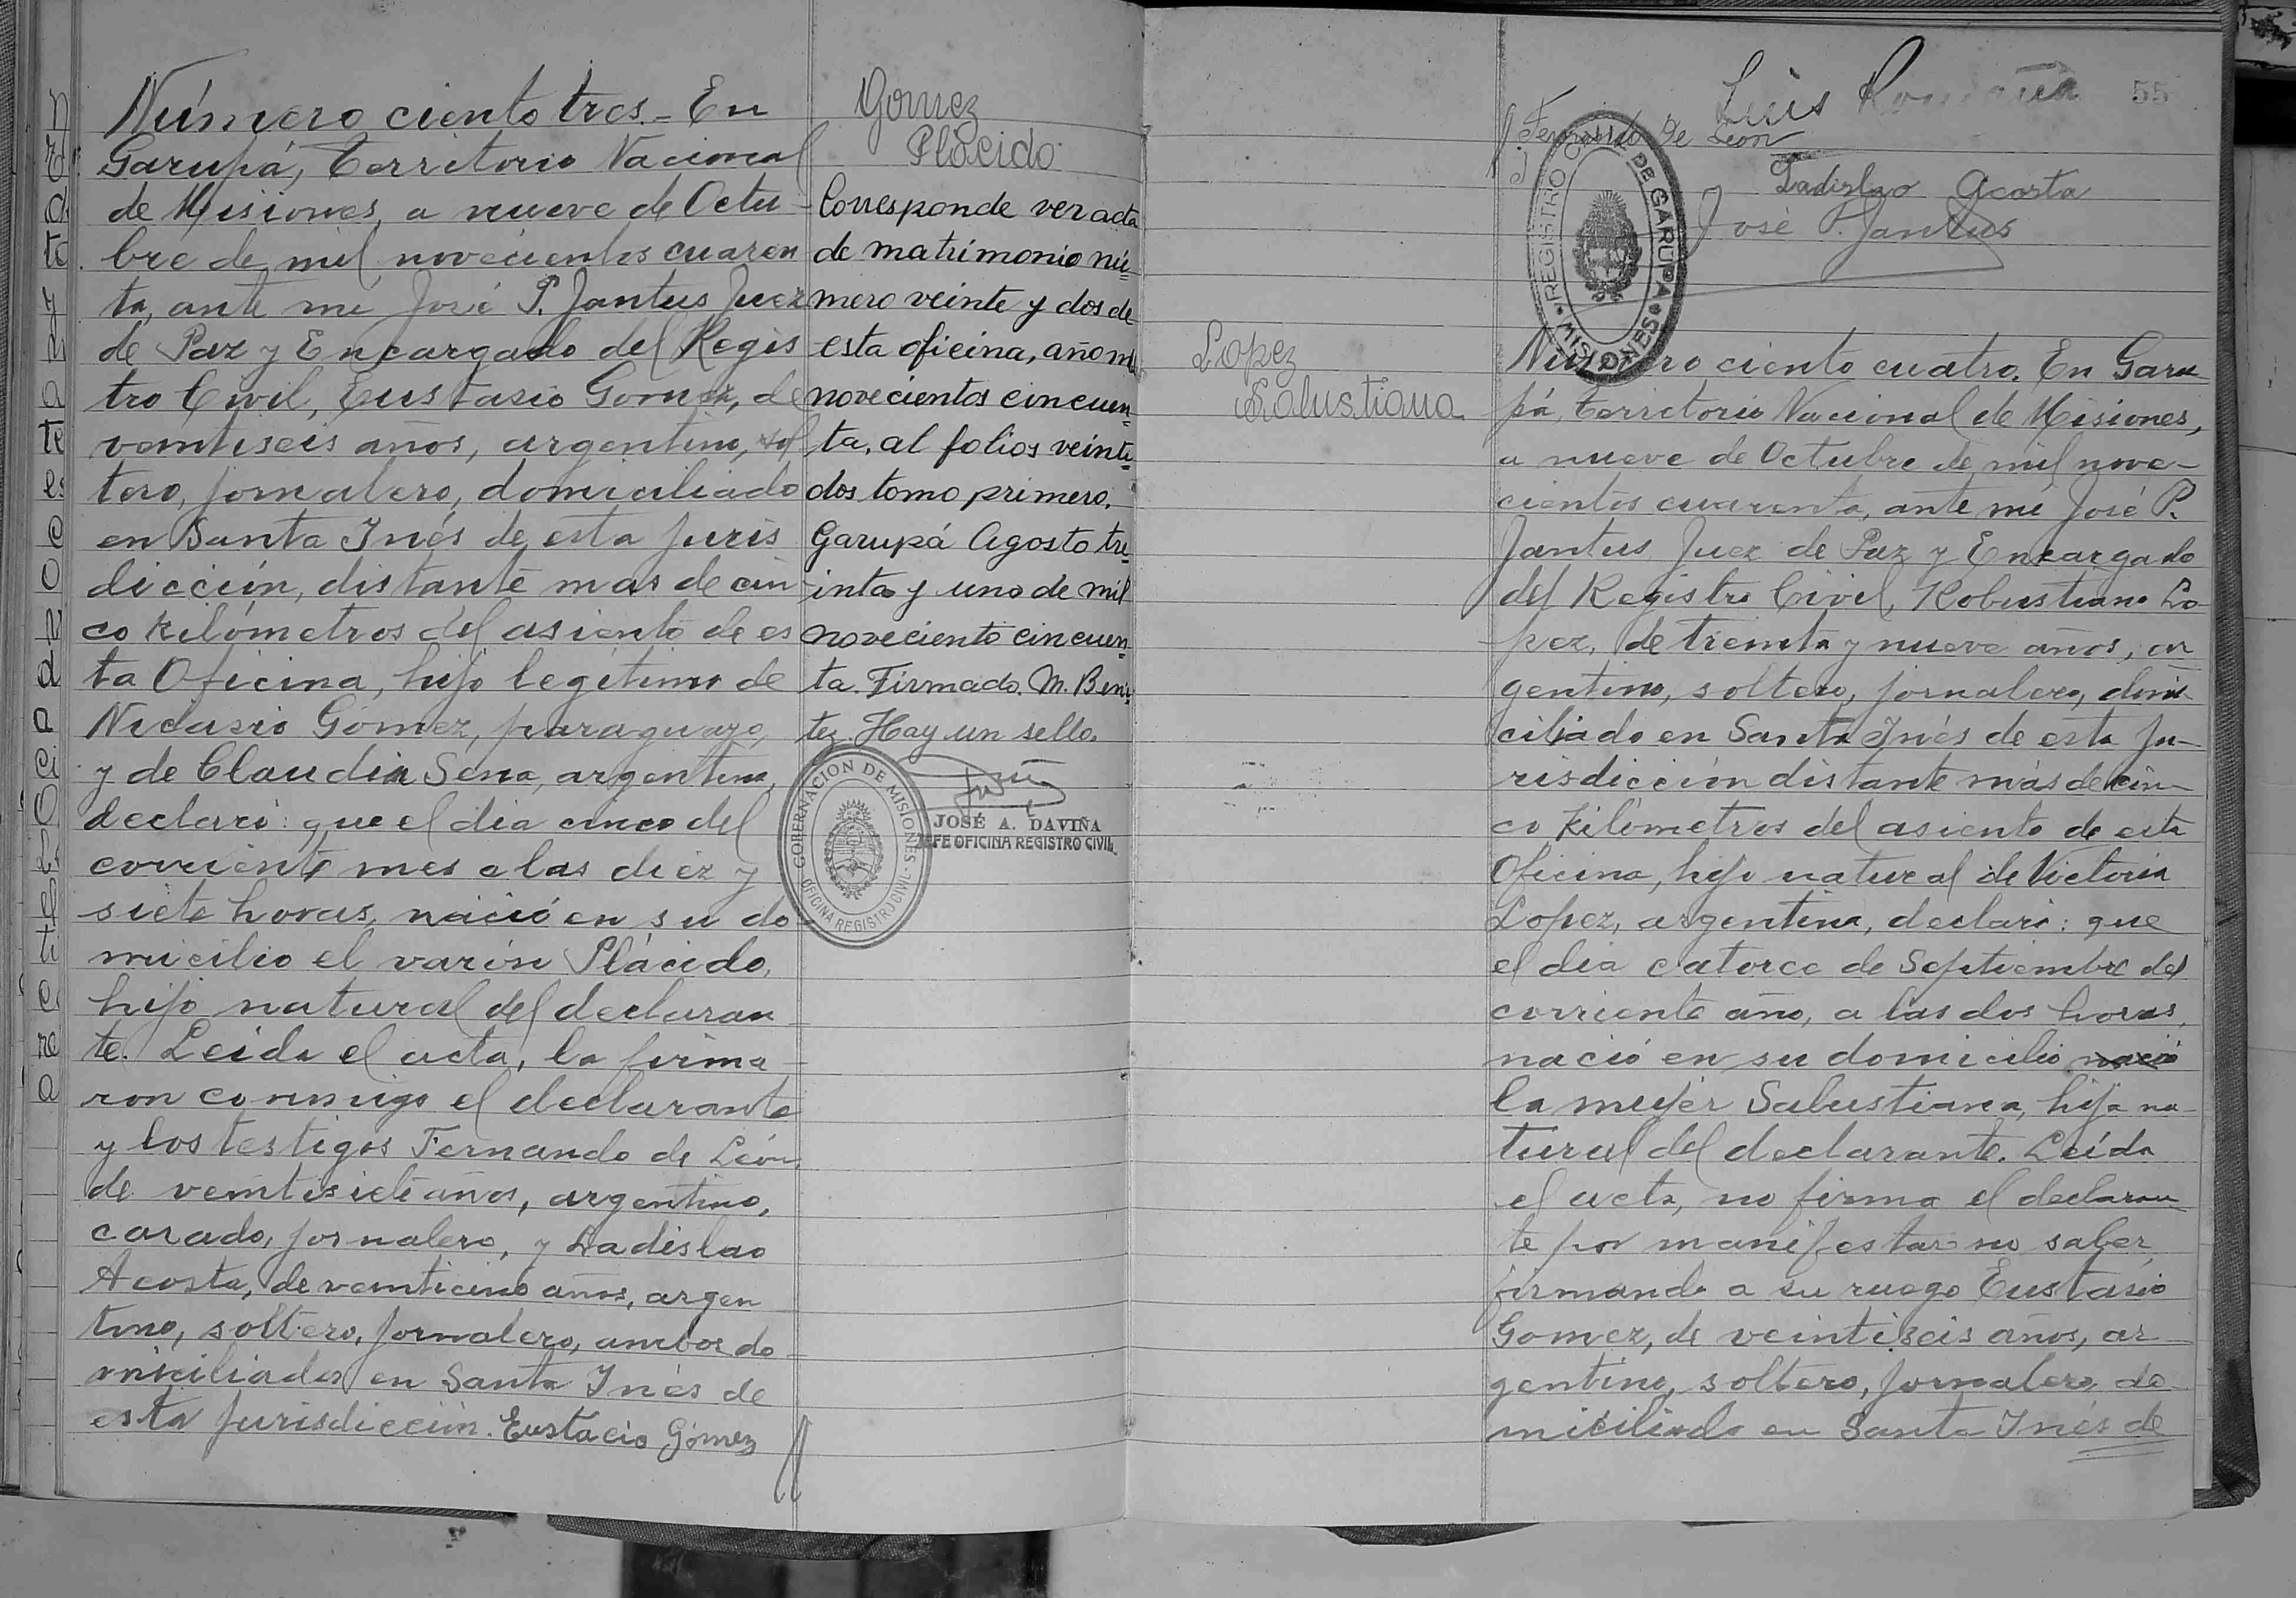 Número ciento tres.- En
Garupá, Territorio Nacional
de Misiones, a nueve de Octu-
bre de mil novecientos cuaren
ta, ante mí José P. Jantus Juez
de Paz y Encargado del Regis
tro Civil, Eustasio Gomez, de
veintiseis años, argentino, sol
tero, jornalero, domiciliado
en Santa Inés de esta juris
dicción, distante mas de cin
co kilómetros del asiento de es
ta Oficina, hijo legítimo de
Nicasio Gómez, paraguayo,
y de Claudia Sena, argentina,
declaró: que el día cinco del
corriente mes a las diez y
siete horas, nació en su do
micilio el varón Plácido,
hijo natural del declaran
te. Leída el acta, la firma-
ron conmigo el declarante
y los testigos Fernando de León,
de veintisiete años, argentino,
casado, jornalero, y Ladislao
Acosta, de veinticinco años, argen
tino, soltero, jornalero, ambos do
miciliados en Santa Inés de
esta jurisdicción. Eustacio Gómez
Gomez
Plácido
Corresponde ver acta
de matrimonio nú=
mero veinte y dos de
esta oficina, año mil
novecientos cincuen=
ta, al folios veinti=
dos tomo primero.
Garupá Agosto tre=
inta y uno de mil
noveciento cincuen=
ta. Firmado. M. Beni=
tez. Hay un sello.
GOBERNACION DE MISIONES
OFICINA REGISTRO CIVIL
JOSÉ A. DAVIÑA
JEFE OFICINA REGISTRO CIVIL
Luis
55
Fernando de León
Ladislao Acosta
José P. Jantus
REGISTRO CIVIL DE GARUPA
MISIONES
Lopez
Salustiana
Número ciento cuatro. En Garu
pá, Territorio Nacional de Misiones,
a nueve de Octubre de mil nove-
cientos cuarenta, ante mí José P.
Jantus Juez de Paz y Encargado
del Registro Civil, Robustiano Lo-
pez, de treinta y nueve años, ar
gentino, soltero, jornalero, domi
ciliado en Santa Inés de esta ju-
risdicción distante más de cin-
co kilómetros del asiento de esta
Oficina, hijo natural de Victoria
Lopez, argentina, declaró: que
el día catorce de Septiembre del
corriente año, a las dos horas,
nació en su domicilio nació
la mujer Salustiana, hija na-
tural del declarante. Leída
el acta, no firma el declaran
te por manifestar no saber,
firmando a su ruego Eustasio
Gomez, de veintiseis años, ar
gentino, soltero, jornalero, do-
miciliado en Santa Inés de